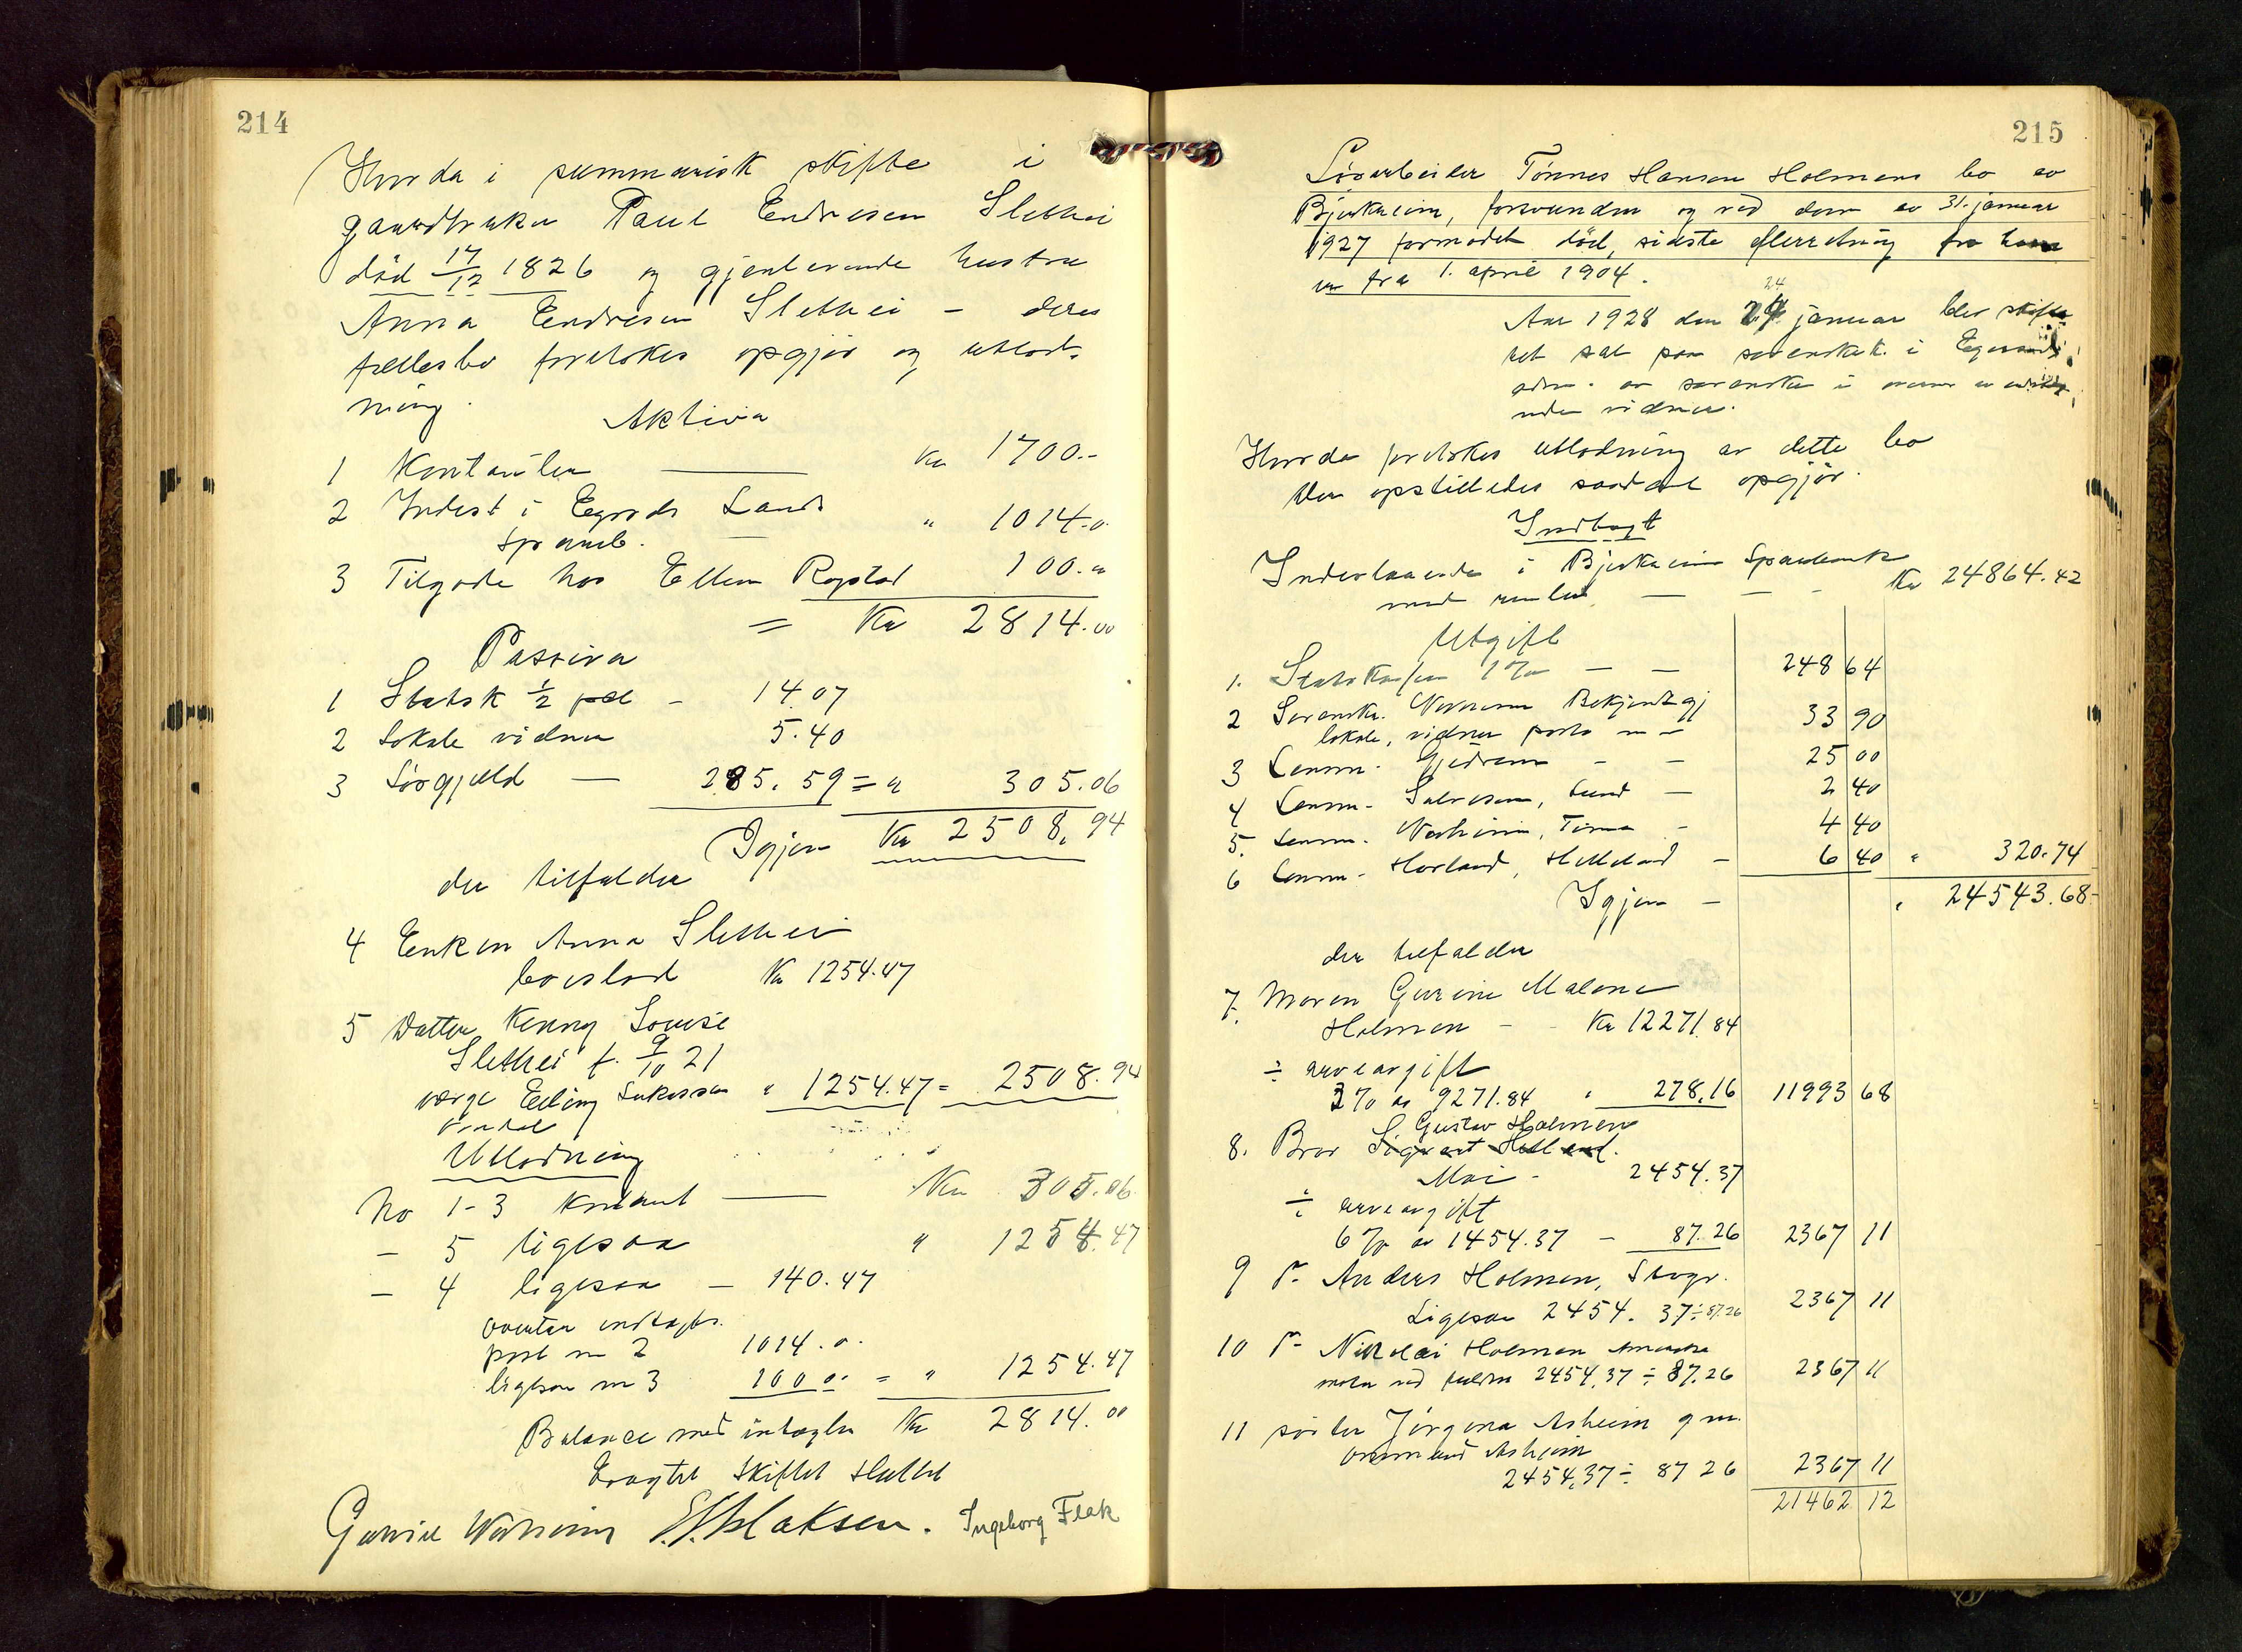 214
Hvorda i summarisk skifte i
gaardbruker Paul Endresen Slethei
død 17/12 1826 og gjenlevende hustru
Anna Endresen Slethei - deres
fællesbo foretokes opgjør og utlod-
ning.
Aktiva
1 Kontanter — Kr 1700.-
2 Indest i Egersds Lands " 1014.0
Spareb. —
3 Tilgode hos Ellen Rogstad 100.00
= Kr 2814.00
Passiva
1 Statsk ½ pct - 14.07
2 Lokale vidner 5.40
3 Løsgjæld — 285.59 = " 305.06
Igjen Kr 2508.94
der tilfalder
4 Enken Anna Slethei
boeslod Kr 1254.47
5 Datter Kenny Louise
Slethei f. 9/10 21
værge Elling " 1254.47 = 2508.94
Utlodning
No 1-3 kontant — Kr 305.06
- 5 ligesaa " 1254.47
- 4 ligesaa - 140.47
indtægts.
post nr 2 1014.0
ligesaa nr 3 100 00 = " 1254.47
Balance med indtægten Kr 2814.00
Skiftet sluttet
E. Aslaksen. Ingeborg Flek
215
Løsarbeider Tønnes Hansen Holmens bo av
Bjerkreim, forsvunden og ved dom av 31. januar
1927 formodet død, sidste efterretning fra ham
er fra 1. april 1904.
24
Aar 1928 den 24 januar blev skifte
ret sat paa sorenskrk. i Egersund
adm. av sorenskr i nærvær av
vidner.
Hvorda foretokes utlodning av dette bo
Der opstilledes saadant opgjør.
Indtægt
Indestaaende i Bjerkreim Sparebank
med renter — — - Kr 24864.42
Utgift
1. Statskassen 1% — — 248 64
2 Sorenskr. Bekjendtgj
lokale, vidner porto m m 33 90
3 Lensm. Gjedrem - - 25 00
4 Lensm. Salvesen, Lund — 2 40
5. Lensm. Time - 4 40
6 Lensm. Hovland, Helleland - 6 40 " 320.74
Igjen — " 24543.68-
der tilfalder
7. Moren Gurine Malene
Holmen - - Kr 12271.84
÷ arveavgift
3% av 9271.84 " 278.16 11993 68
Gustav Holmen
8. Bror Sigvart Helland.
Moi - 2454.37
÷ arveavgift
6% av 1454.37 — 87.26 2367 11
9 do Anders Holmen,
Ligesaa 2454.37 ÷ 87.26 2367 11
10 do Nikolai Holmen Amerika
2454.37 ÷ 87.26 2367 11
11 søster Jørgena Asheim g m.
Ommund Asheim
2454.37 ÷ 87 26 2367 11
21462 12